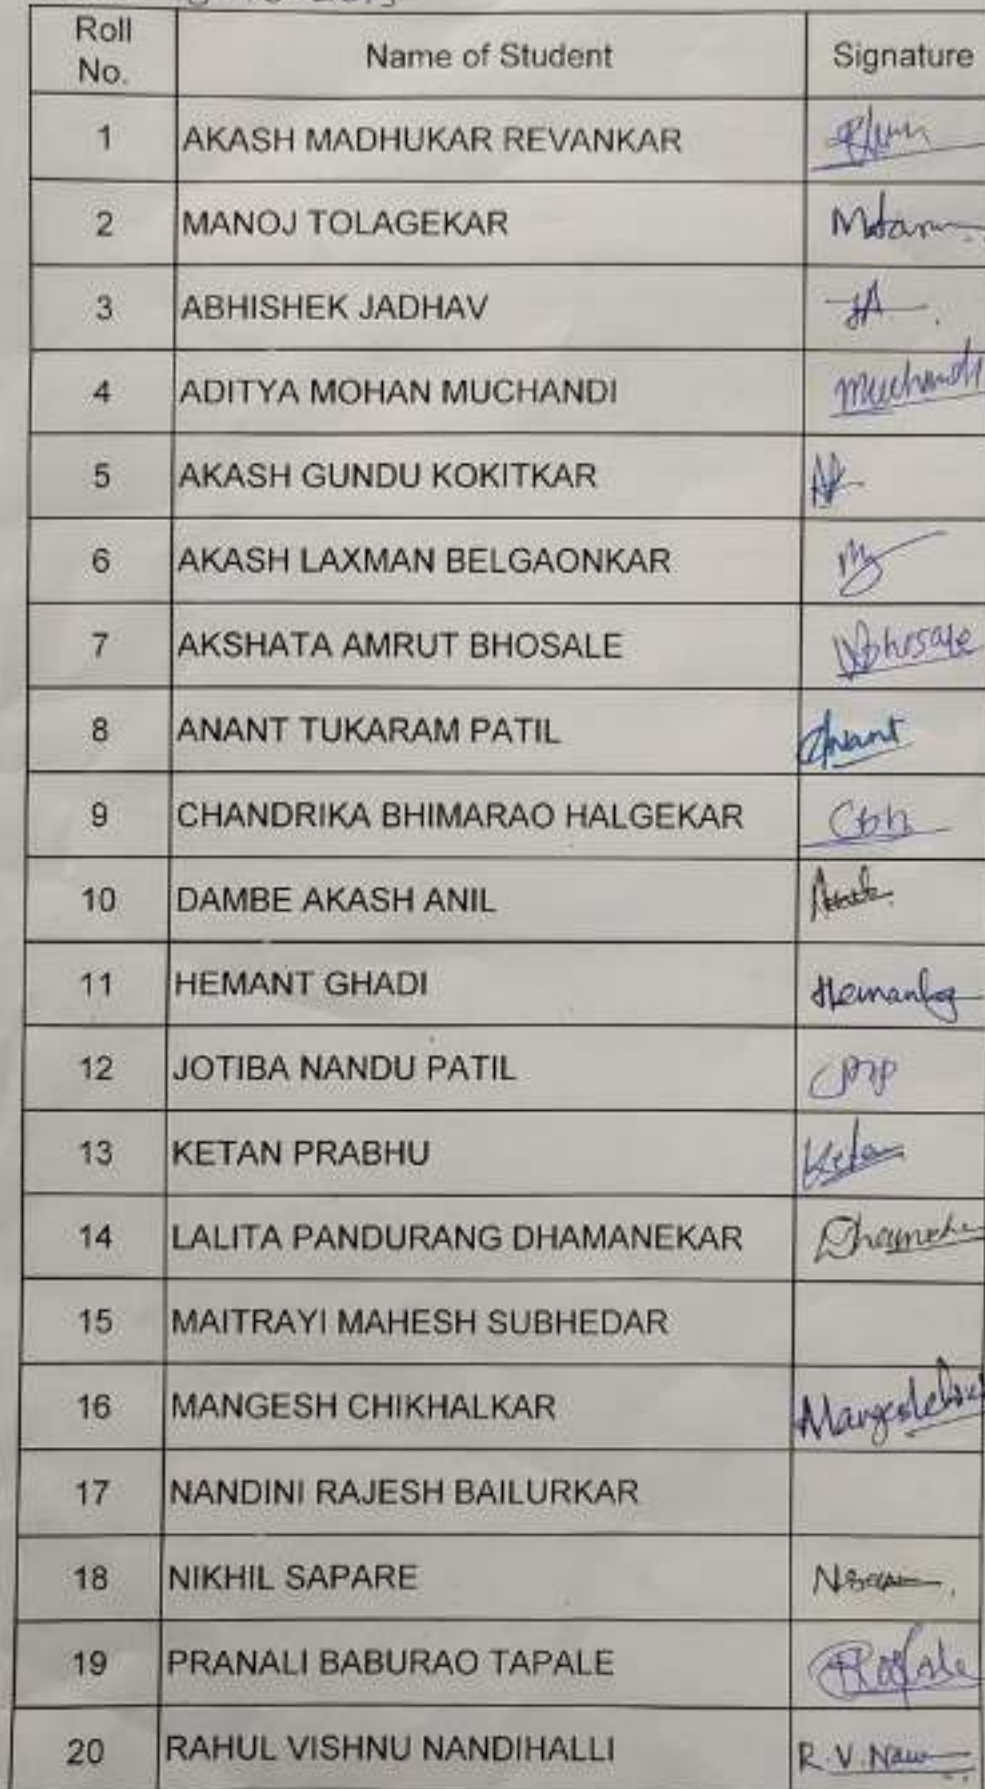 Roll No. Name of Student Signature
1 AKASH MADHUKAR REVANKAR
2 MANOJ TOLAGEKAR
3 ABHISHEK JADHAV JA.
4 ADITYA MOHAN MUCHANDI Muchandi
5 AKASH GUNDU KOKITKAR AK
6 AKASH LAXMAN BELGAONKAR
7 AKSHATA AMRUT BHOSALE Abhosale
8 ANANT TUKARAM PATIL Anant
9 CHANDRIKA BHIMARAO HALGEKAR Cbh
10 DAMBE AKASH ANIL
11 HEMANT GHADI Hemantg
12 JOTIBA NANDU PATIL
13 KETAN PRABHU Ketan
14 LALITA PANDURANG DHAMANEKAR
15 MAITRAYI MAHESH SUBHEDAR
16 MANGESH CHIKHALKAR
17 NANDINI RAJESH BAILURKAR
18 NIKHIL SAPARE
19 PRANALI BABURAO TAPALE
20 RAHUL VISHNU NANDIHALLI R.V.